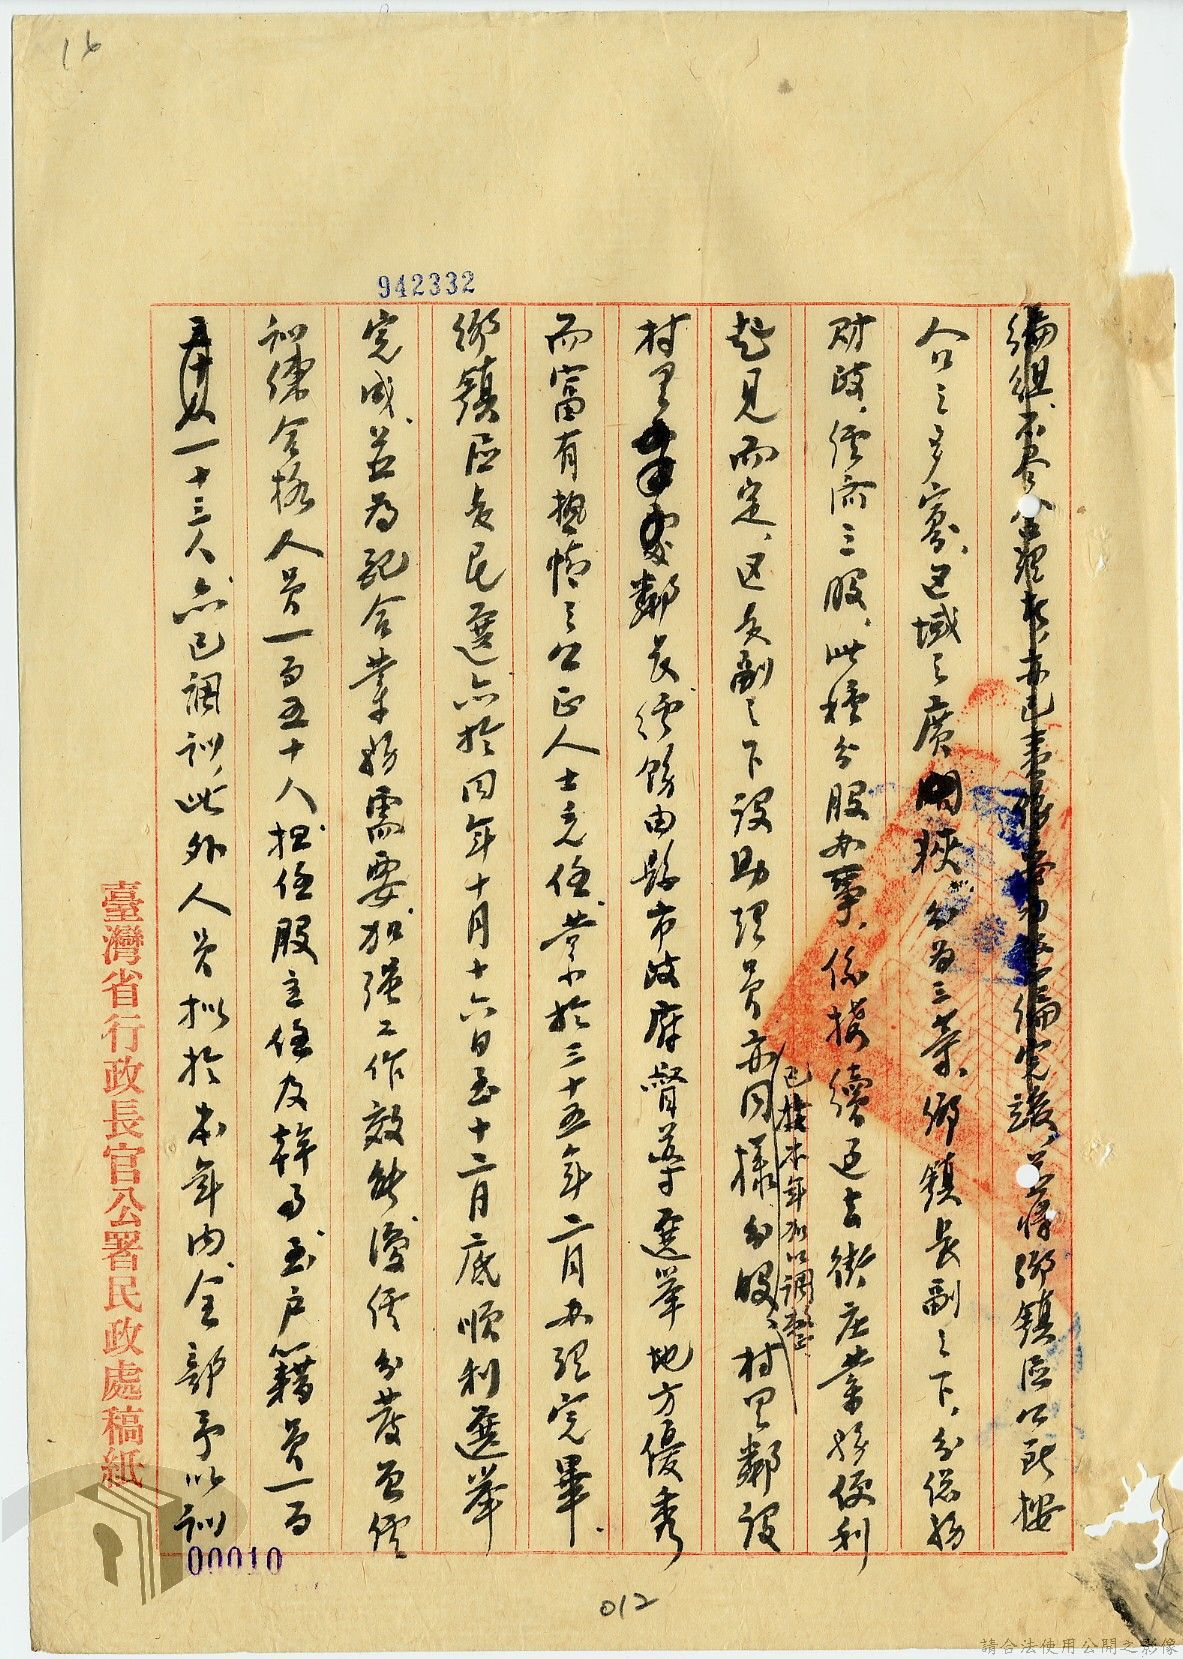 16
942332
編組不盡合理者,亦已重張為初整編完竣,並將鄉鎮區公所按
人口之多寡,區域之廣狹分為三等,鄉鎮長副之下,分總務
財政,經濟三股,此種分股办事,係接續过去街庄業務便利
起見而定,区長副之下設助理員亦同樣分股,村里鄰設
已於本年加以調整
村里鄰長經飭由縣市政府督導選舉地方優秀
而富有熱情之公正人士充任,業於三十五年二月办理完畢.
鄉鎮區長民選亦於同年十月十六日至十二月底順利選舉
完成,並為配合業務需要加强工作效能,經分發
訓練合格人員一百五十人担任股主任及幹事,至戶籍員一百
一十三人亦已調訓,此外人員擬於本年內全部予以訓
臺灣省行政長官公署民政處稿紙
00010
012
請合法使用公開之影像